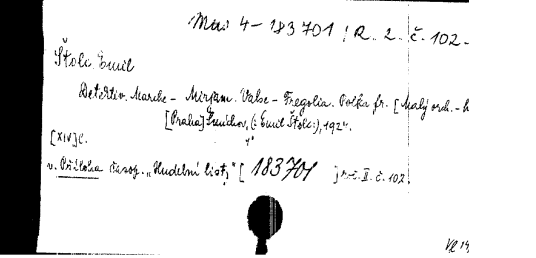 Mus 4 - 183701 | R. 2. č. 102.
Štolc Emil
Detektiv. Marche - Mirjam. Valse - Fregolia. Polka fr. [Malý orch. - h
[Praha] Smíchov, (: Emil Štolc :), 192".
4°
[XIV] l.
v. Příloha časop. "Hudební listy" [ 183701 ] roč. II. č. 102.